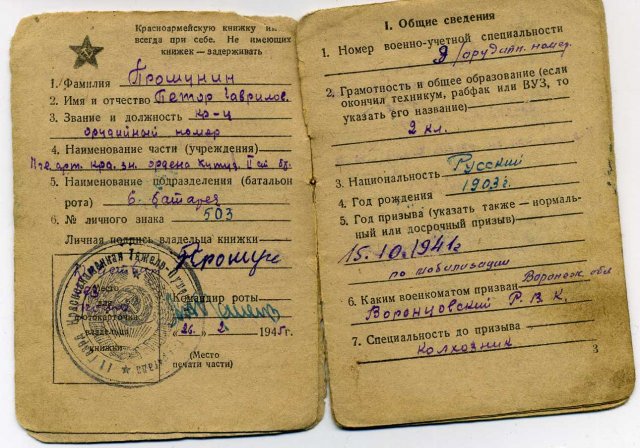 Красноармейскую книжку им
всегда при себе. Не имеющих
книжек — задерживать
1. Фамилия Прошунин
2. Имя и отчество Петор Гаврилов.
3. Звание и должность кр-ц
орудийный номер
4. Наименование части (учреждения)
арт. кра. зн. ордена Кутуз. II ст. бр.
5. Наименование подразделения (батальон
рота) 6. батарея
6. № личного знака 503
Личная подпись владельца книжки
Прошун
Место
для
фотокарточки
владельца
книжки
Командир роты
„26" 2 1945г.
(Место
печати части)
I. Общие сведения
1. Номер военно-учетной специальности
9/орудийн. номер.
2. Грамотность и общее образование (если
окончил техникум, рабфак или ВУЗ, то
указать его название)
2 кл.
3. Национальность Русский
4. Год рождения 1903 г.
5. Год призыва (указать также — нормаль-
ный или досрочный призыв)
15.10.1941г
по мобилизации
6. Каким военкоматом призван Воронеж. обл
Воронцовский Р.В.К.
7. Специальность до призыва
колхозник
3